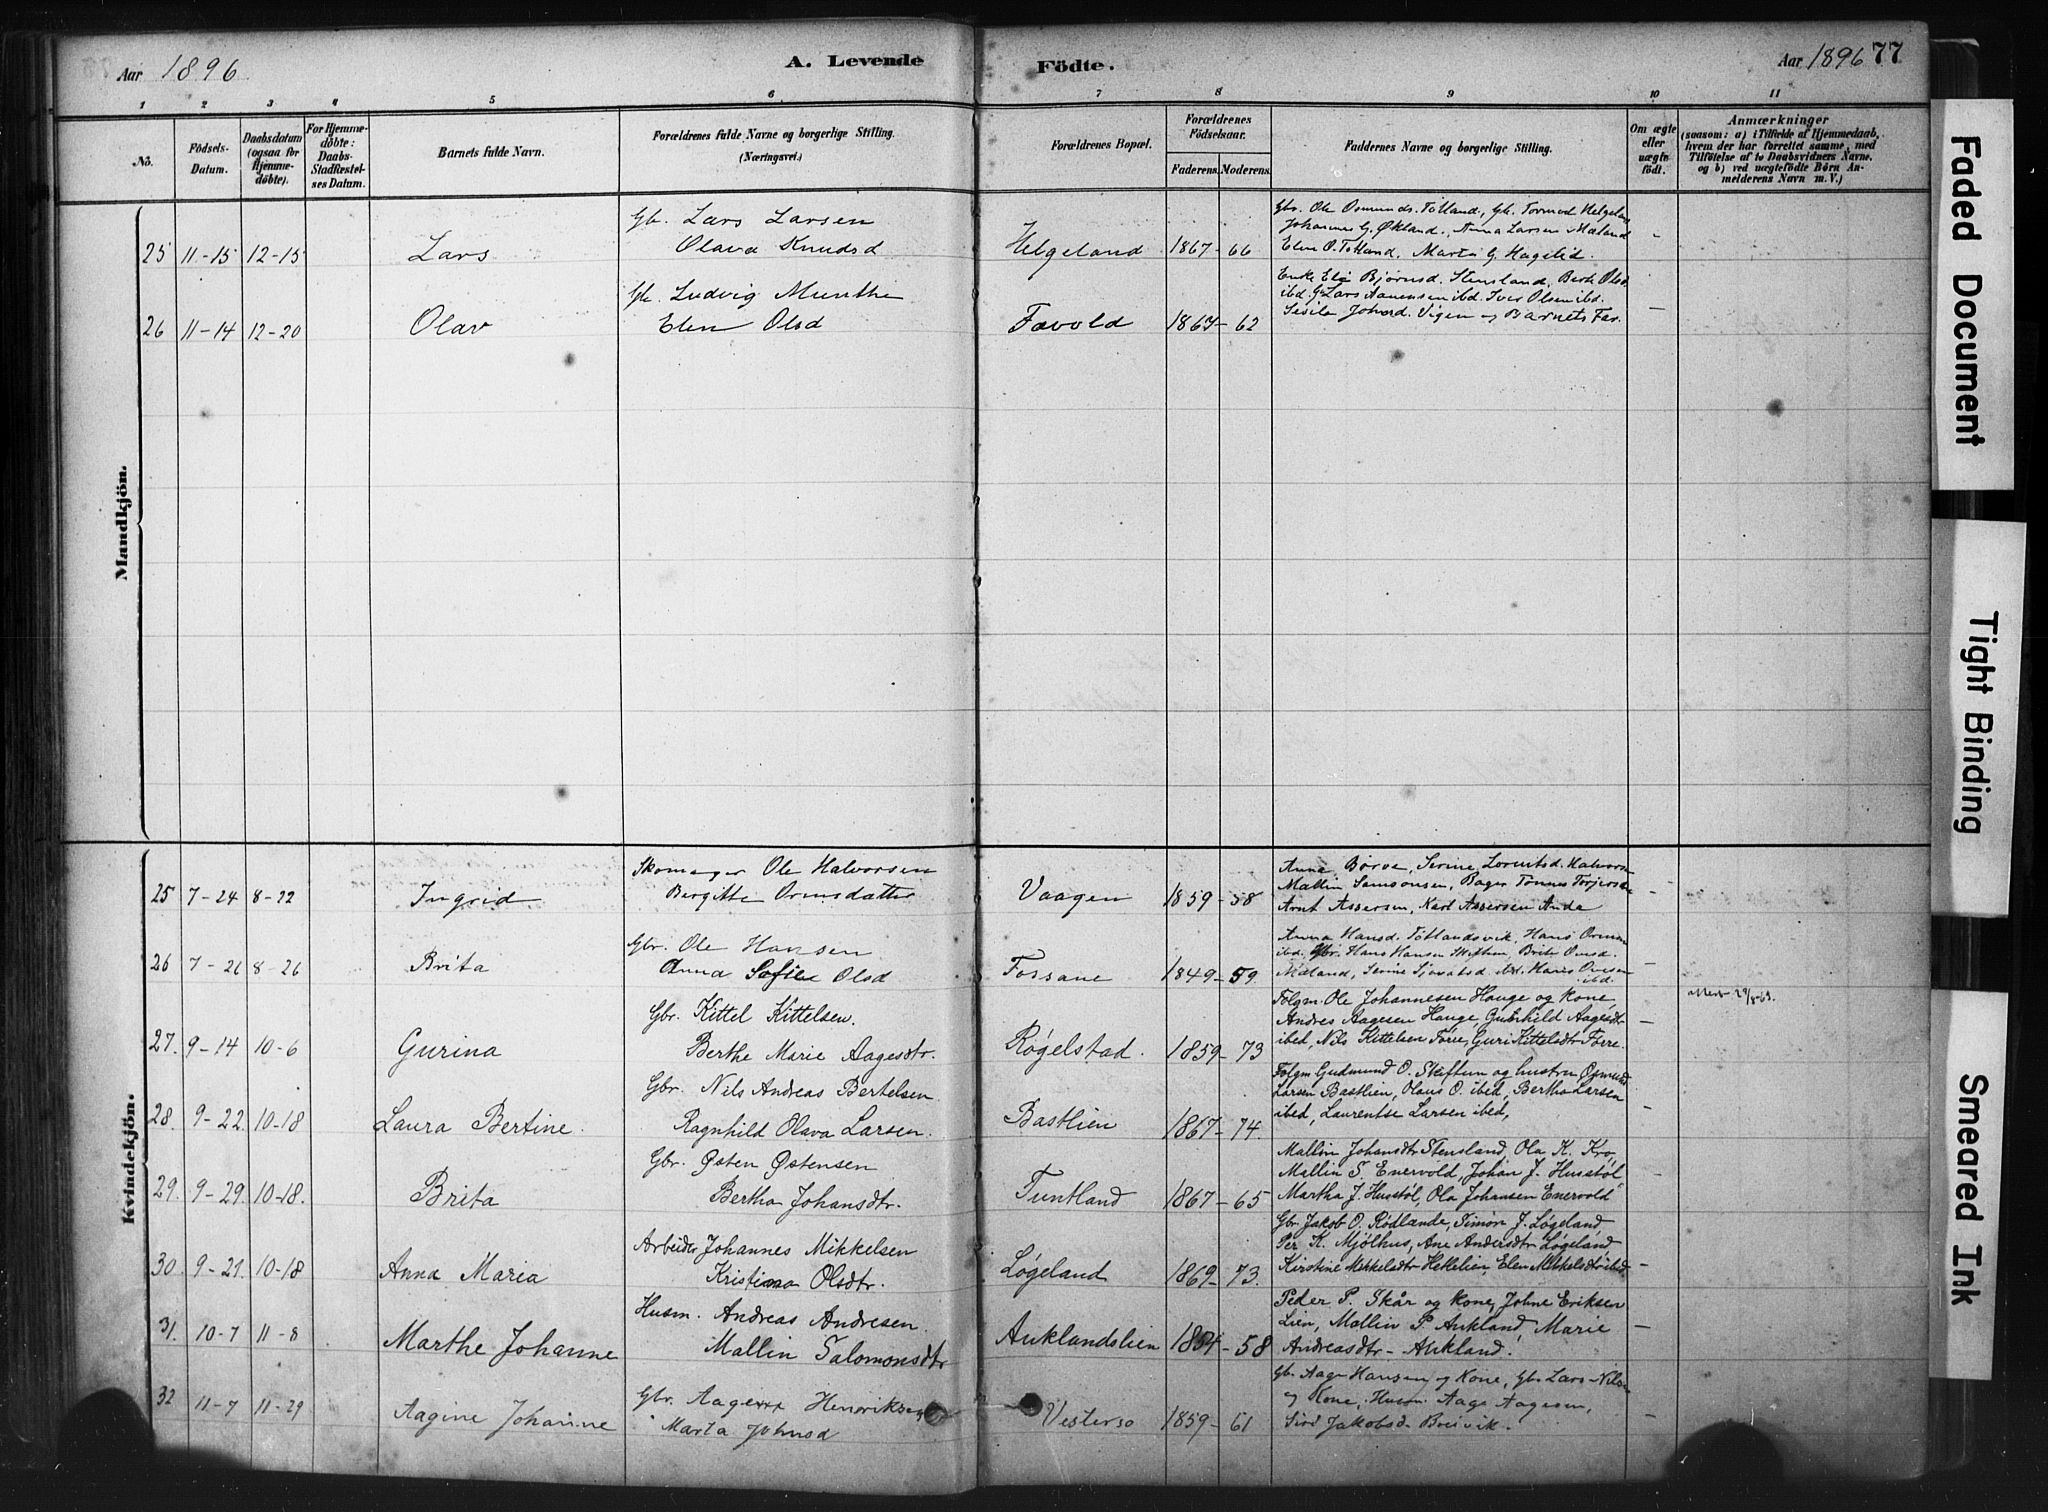 Aar 1896
A. Levende
Födte.
Aar 1896 77
1 2 3 4 5 6 7 8 9 10 11
No.
Födsels-
Datum.
Daabsdatum
(ogsaa for
Hjemme-
döbte).
For Hjemme-
döbte:
Daabs-
Stadfæstel-
ses Datum.
Barnets fulde Navn.
Forældrenes fulde Navne og borgerlige Stilling.
(Næringsvei.)
Forældrenes Bopæl.
Forældrenes
Födselsaar.
Faderens. Moderens.
Faddernes Navne og borgerlige Stilling.
Om ægte
eller
uægte
födt.
Anmærkninger
(saasom: a) i Tilfælde af Hjemmedaab,
hvem der har forrettet samme, med
Tilföielse af to Daabsvidners Navne,
og b) ved uægtefödte Börn An-
melderens Navn m. V.)
Mandkjön.
Gb. Lars Larsen
25 11-15 12-15 Lars Olava Knudsd Helgeland 1867-66
Gbr. Ole Osmunds. Totland, Gb. Tormod Helgeland
Johannes G. Økland, Anna Larsen Mæland
Elen O. Totland, Marta G. Hagelid.
Gb. Ludvig Munthe
26 11-14 12-20 Olav Elen Olsd Fævold 1867-62
Enke Eli Bjørnsd. Stensland, Berte Olsd.
ibd. Gb. Lars Aanensen ibd. Iver Olsen ibd.
Sesile Johnsd. Vigen og Barnets Far.
Kvindekjön.
Skomager Ole Halvorsen
25 7-24 8-22 Ingrid Bergitte Ormsdatter Vaagen 1859-58
Anna Børve, Serine Lorentsd. Halvorsen
Mallin Samsonsen, Bager Tønnes Torjersen
Arnt Assersen, Karl Assersen Anda
Gbr. Ole Hansen
26 7-26 8-26 Brita Anna Sofie Olsd Fossane 1849-59.
Anna Hansd. Totlandsvik, Hans Ormsen
ibd. Gbr. Hans Hansen Skiftun, Brite Omsd.
Mæland, Serine Sjursd ibd. Hans Omsen
ibd.
Gbr. Kittel Kittelsen.
27. 9-14 10-6 Gurina Berthe Marie Aagesdtr. Røgelstad. 1859-73
Følgm. Ole Johannesen Hauge og Kone,
Andres Aagesen Hauge, Gunhild Aagesdtr
ibed, Nils Kittelsen Førre, Guri Kittelsdtr Førre.
attest 29/8-63.
Gbr. Nils Andreas Bertelsen
28. 9-22. 10-18 Laura Bertine. Ragnhild Olava Larsen. Bastlien 1867-74.
Følgm Gudmund O. Skiftun og hustru, Osmund
Larsen Bastlien, Olaus O. ibed, Bertha Larsen
ibed, Laurentse Larsen ibed,
Gbr. Østen Østensen
29. 9-29. 10-18. Brita Bertha Johansdtr. Tuntland 1867-65
Mallin Johansdtr Stensland, Ola K. Kro
Mallin T. Enervold, Johan J. Husstøl
Martha J. Husstøl, Ola Johansen Enervold
Arbeider Johannes Mikkelsen
30. 9-21. 10-18 Anna Maria Kristiana Olsdtr. Løgeland 1869-73.
Gbr. Jakob O. Rødlande, Simon J. Løgeland
Per K. Mjølhus, Ane Andersdtr Løgeland
Kirstine Mikkelsdtr Hettelien, Elen Mikkelsdtr ibd
Husm. Andreas Andresen.
31. 10-7 11-8 Marthe Johanne Mallin Salomonsdtr Auklandslien 1854-58
Peder P. Skår og Kone, Johne Eriksen
Lien, Mallin P. Aukland, Marie
Andreasdtr - Aukland.
Gbr. Aage Henriksen
32 11-7 11-29 Aagine Johanne Marta Johnsd Vestersø 1859-61
Gb. Aage Hansen og Kone, Gb. Lars Nilsen
og Kone, Husm. Aage Aagesen,
Siri Jakobsd. Breivik.
Faded Document
Tight Binding
Smeared Ink